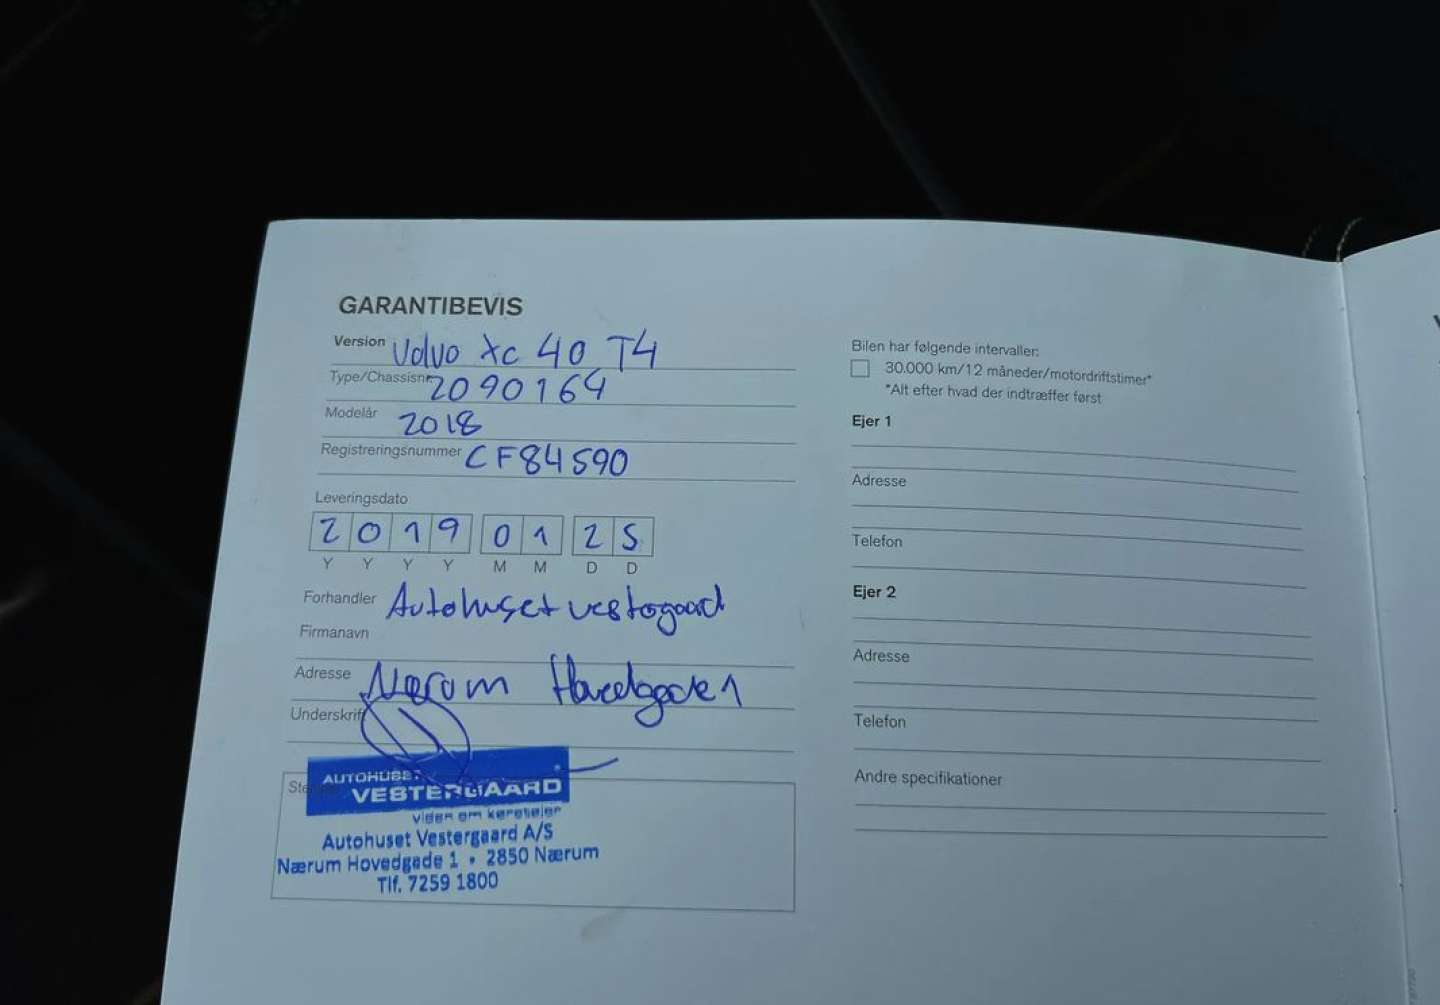 GARANTIBEVIS
Version Volvo XC 40 T4
Type/Chassisnr. 2090164
Modelår 2018
Registreringsnummer CF84590
Leveringsdato
2019 01 25
Y Y Y Y M M D D
Forhandler Autohuset vestergaard
Firmanavn
Adresse Nærum Hovedgade 1
Underskrift
AUTOHUSET
VESTERGAARD
viden om køretøjer
Autohuset Vestergaard A/S
Nærum Hovedgade 1 • 2850 Nærum
Tlf. 7259 1800
Bilen har følgende intervaller:
30.000 km/12 måneder/motordriftstimer*
*Alt efter hvad der indtræffer først
Ejer 1
Adresse
Telefon
Ejer 2
Adresse
Telefon
Andre specifikationer